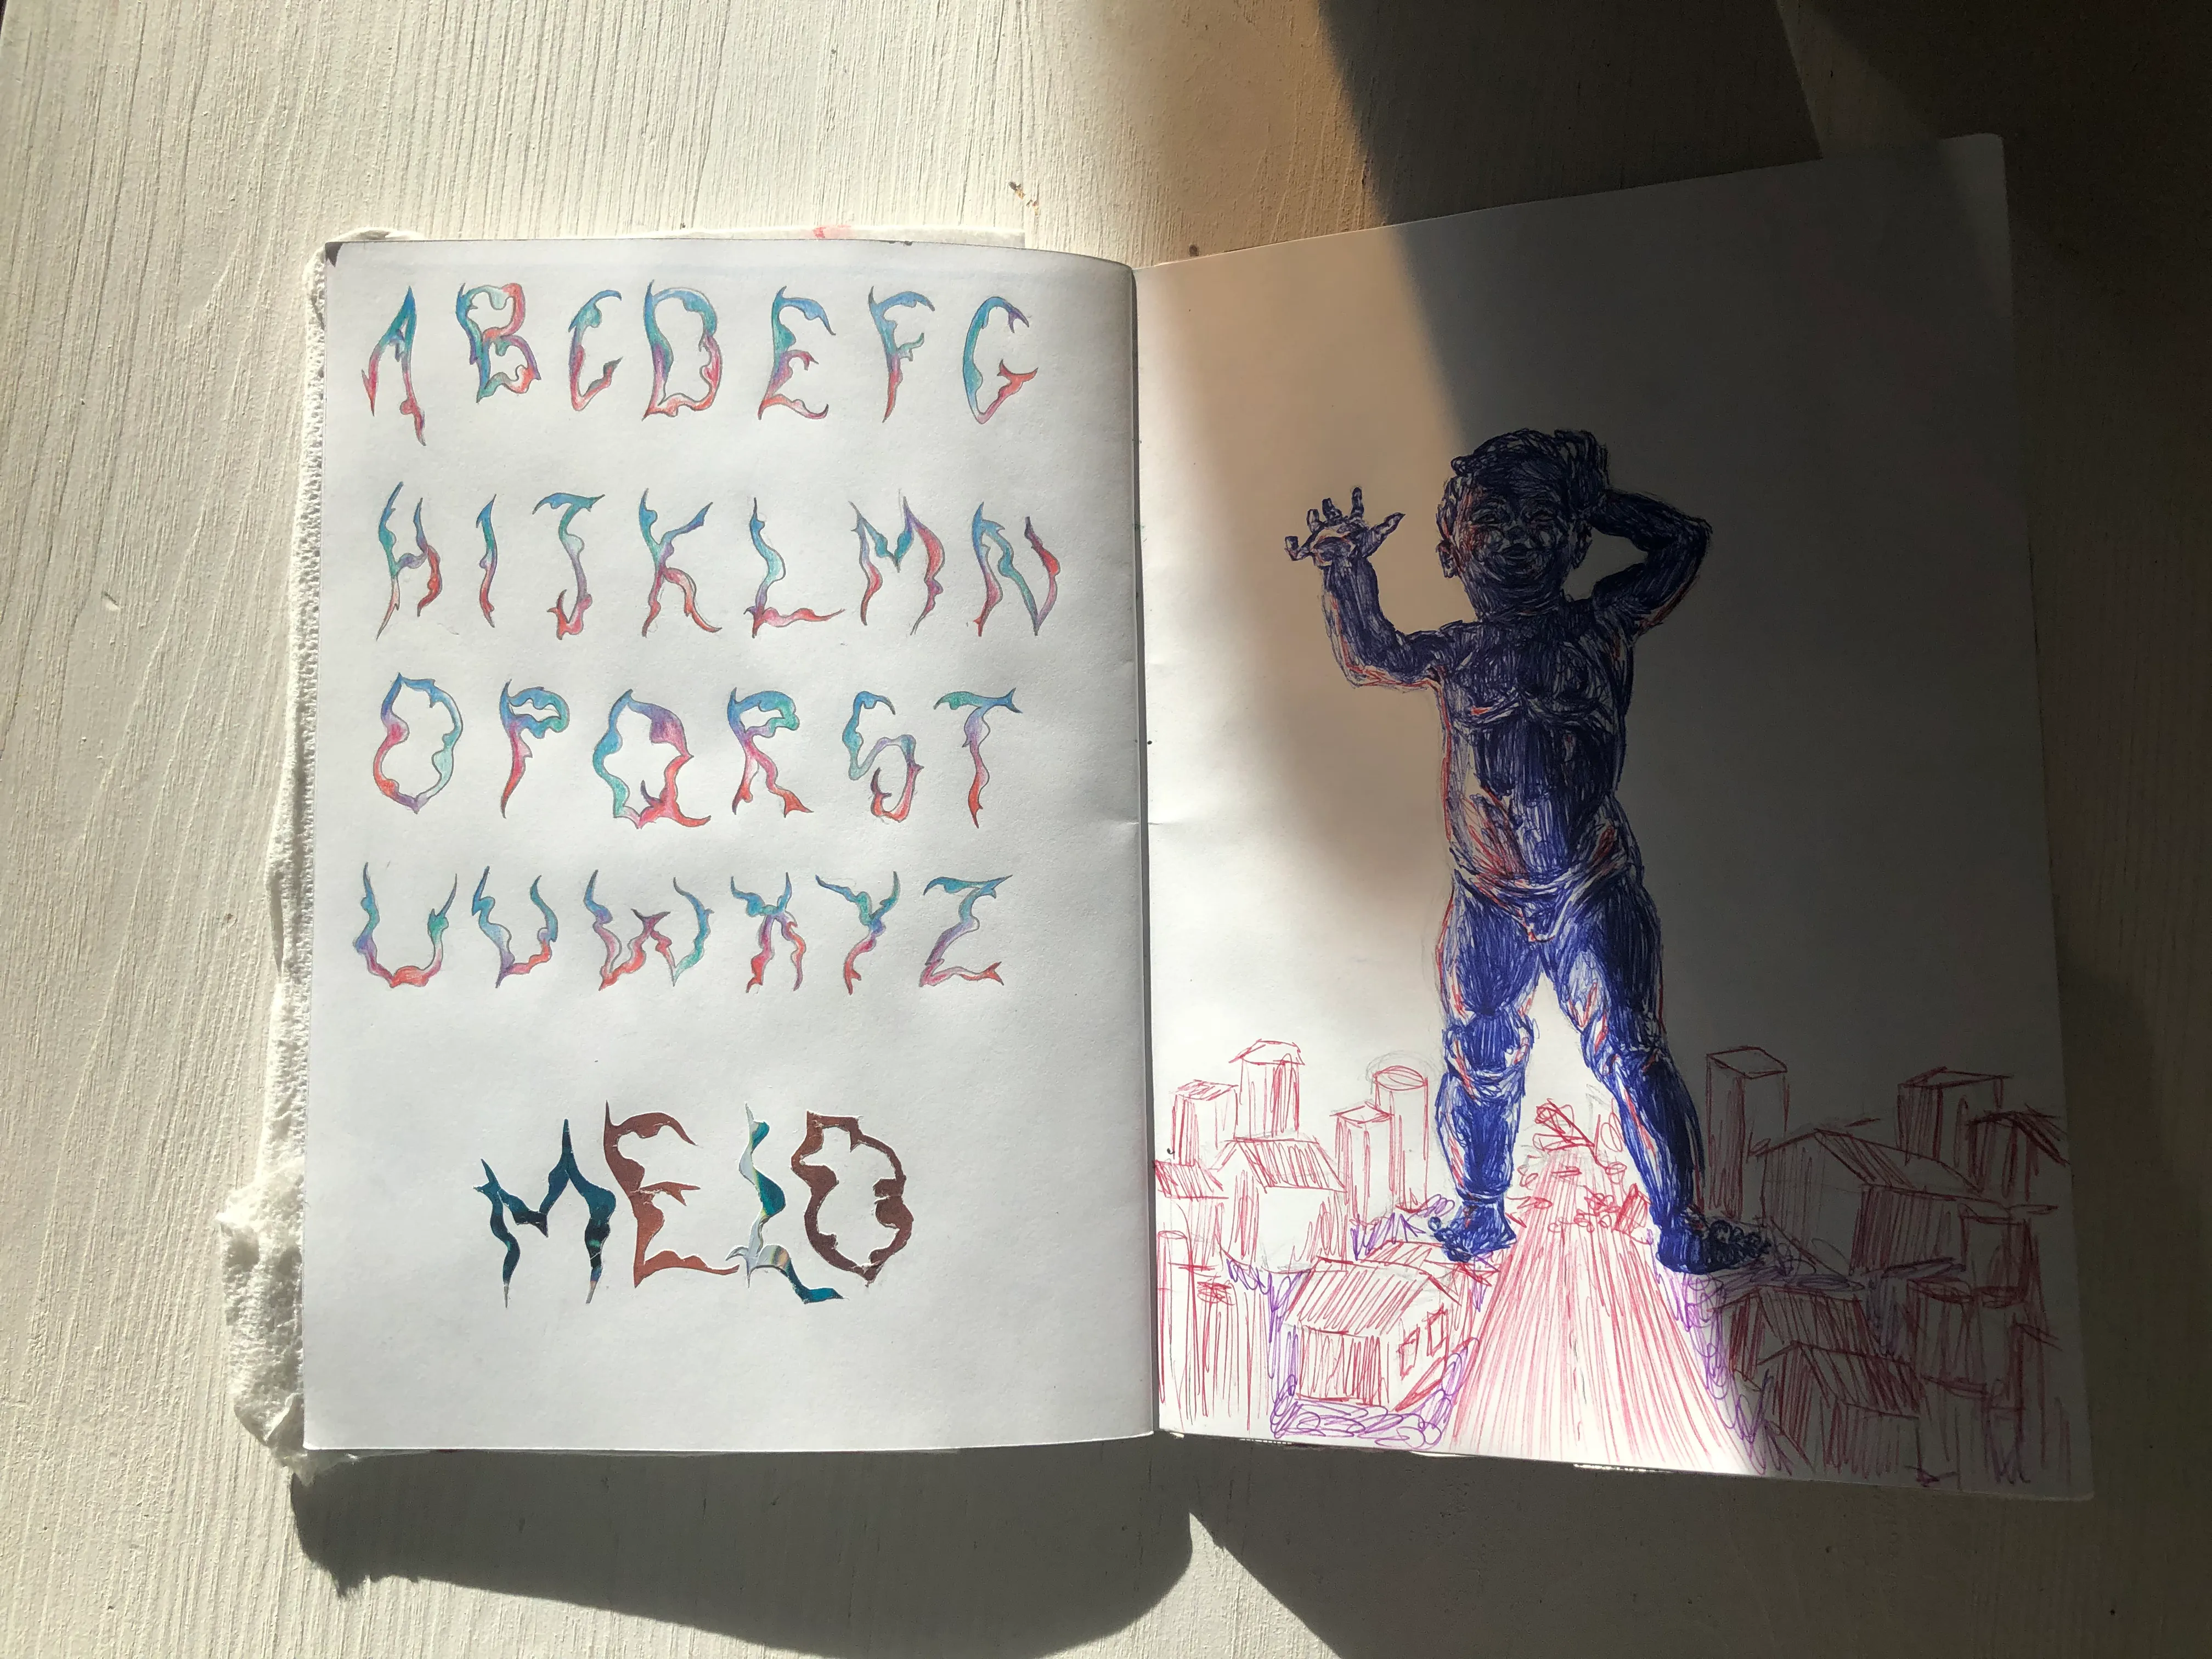 A B C D E F G
H I J K L M N
O P Q R S T
U V W X Y Z
MELO